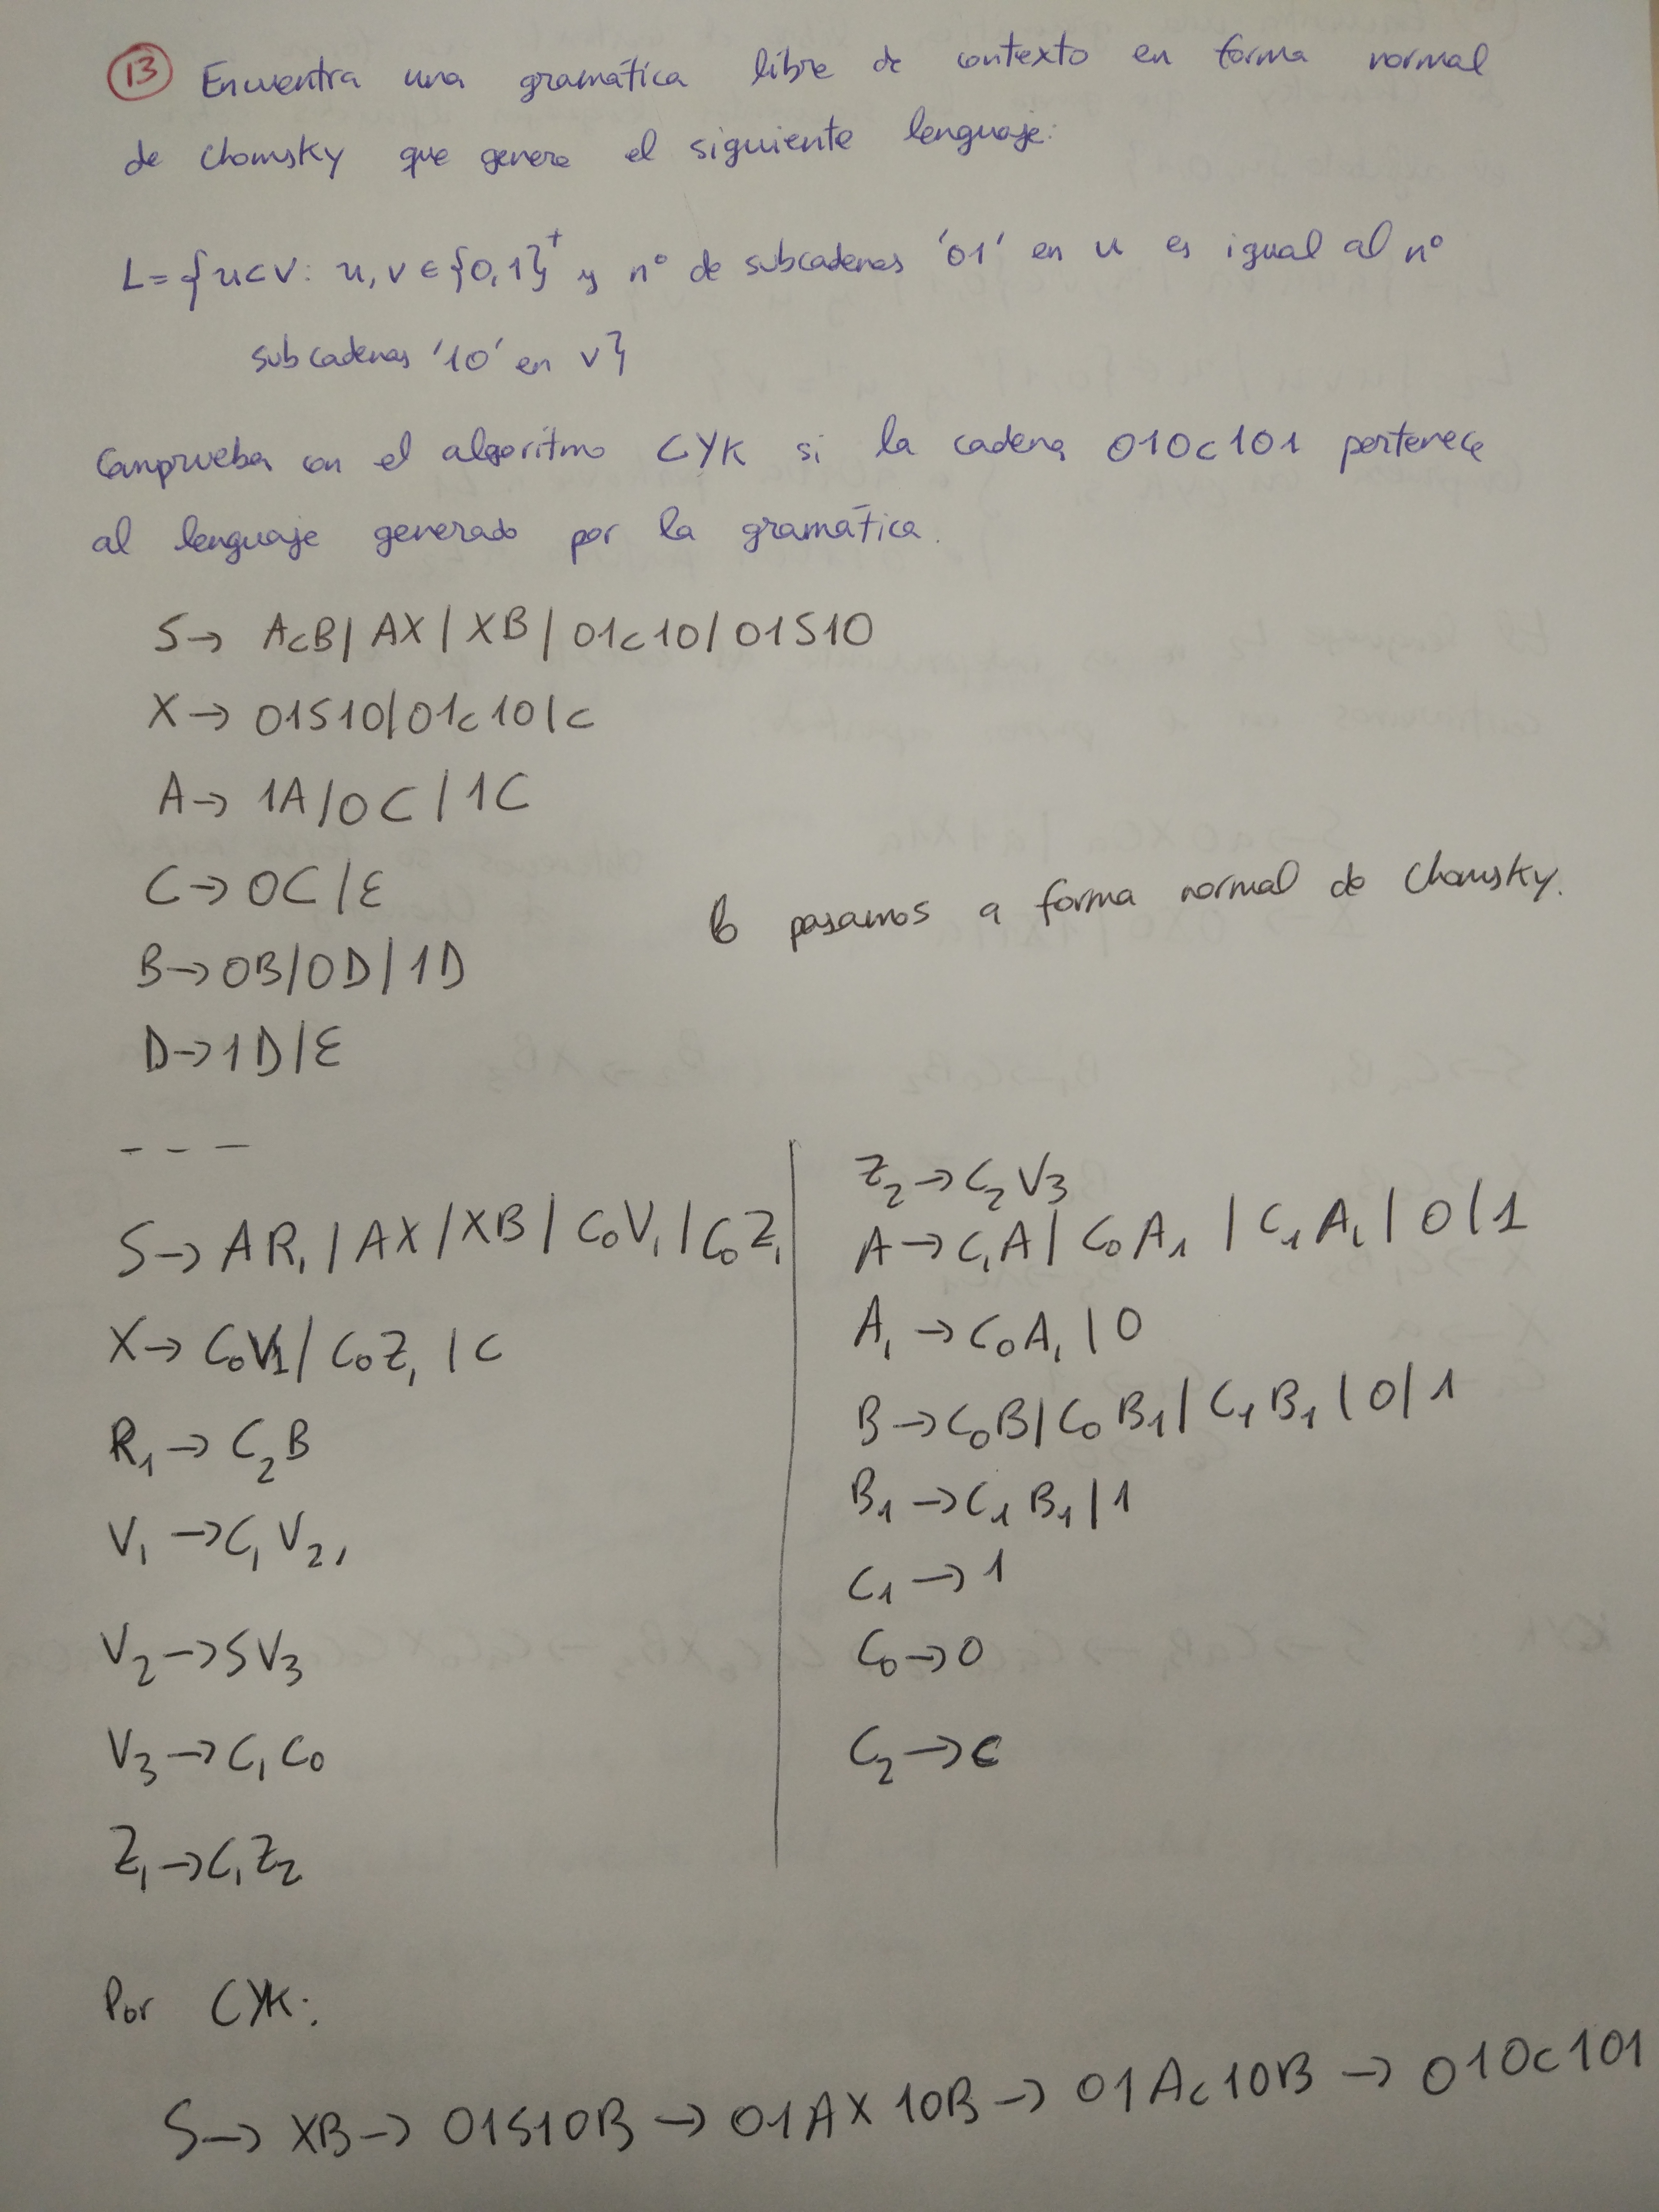 13 Encuentra una gramática libre de contexto en forma normal
de Chomsky que genere el siguiente lenguaje:
L={ucv: u,v∈{0,1}⁺ y nº de subcadenas '01' en u es igual al nº
subcadenas '10' en v}
Comprueba con el algoritmo CYK si la cadena 010c101 pertenece
al lenguaje generado por la gramática.
S→ AcB | AX | XB | 01c10 | 01S10
X→ 01S10 | 01c10 | c
A→ 1A | 0C | 1C
C→ 0C | ε
pasamos a forma normal de Chomsky.
B→ 0B | 0D | 1D
D→ 1D | ε
- - -
S→ AR₁ | AX | XB | C₀V₁ | C₀Z₁
X→ C₀V₁ | C₀Z₁ | c
R₁→ C₂B
V₁→ C₁V₂,
V₂→ SV₃
V₃→ C₁C₀
Z₁→ C₁Z₂
Z₂→ C₂V₃
A→ C₁A | C₀A₁ | C₁A₁ | 0 | 1
A₁→ C₀A₁ | 0
B→ C₀B | C₀B₁ | C₁B₁ | 0 | 1
B₁→ C₁B₁ | 1
C₁→ 1
C₀→ 0
C₂→ c
Por CYK:
S→ XB→ 01S10B → 01AX10B→ 01Ac10B → 010c101